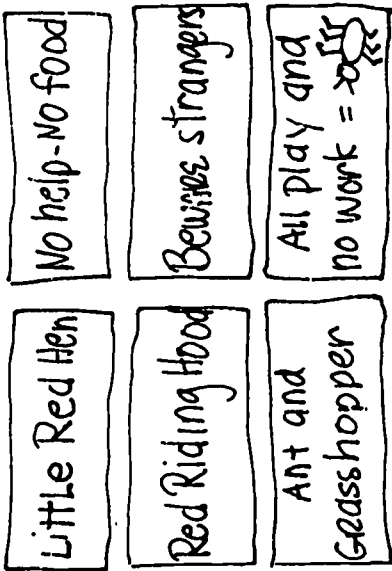 Little Red Hen
No help-No food
Red Riding Hood
strangers
Ant and
GRasshopper
All play and
no work =